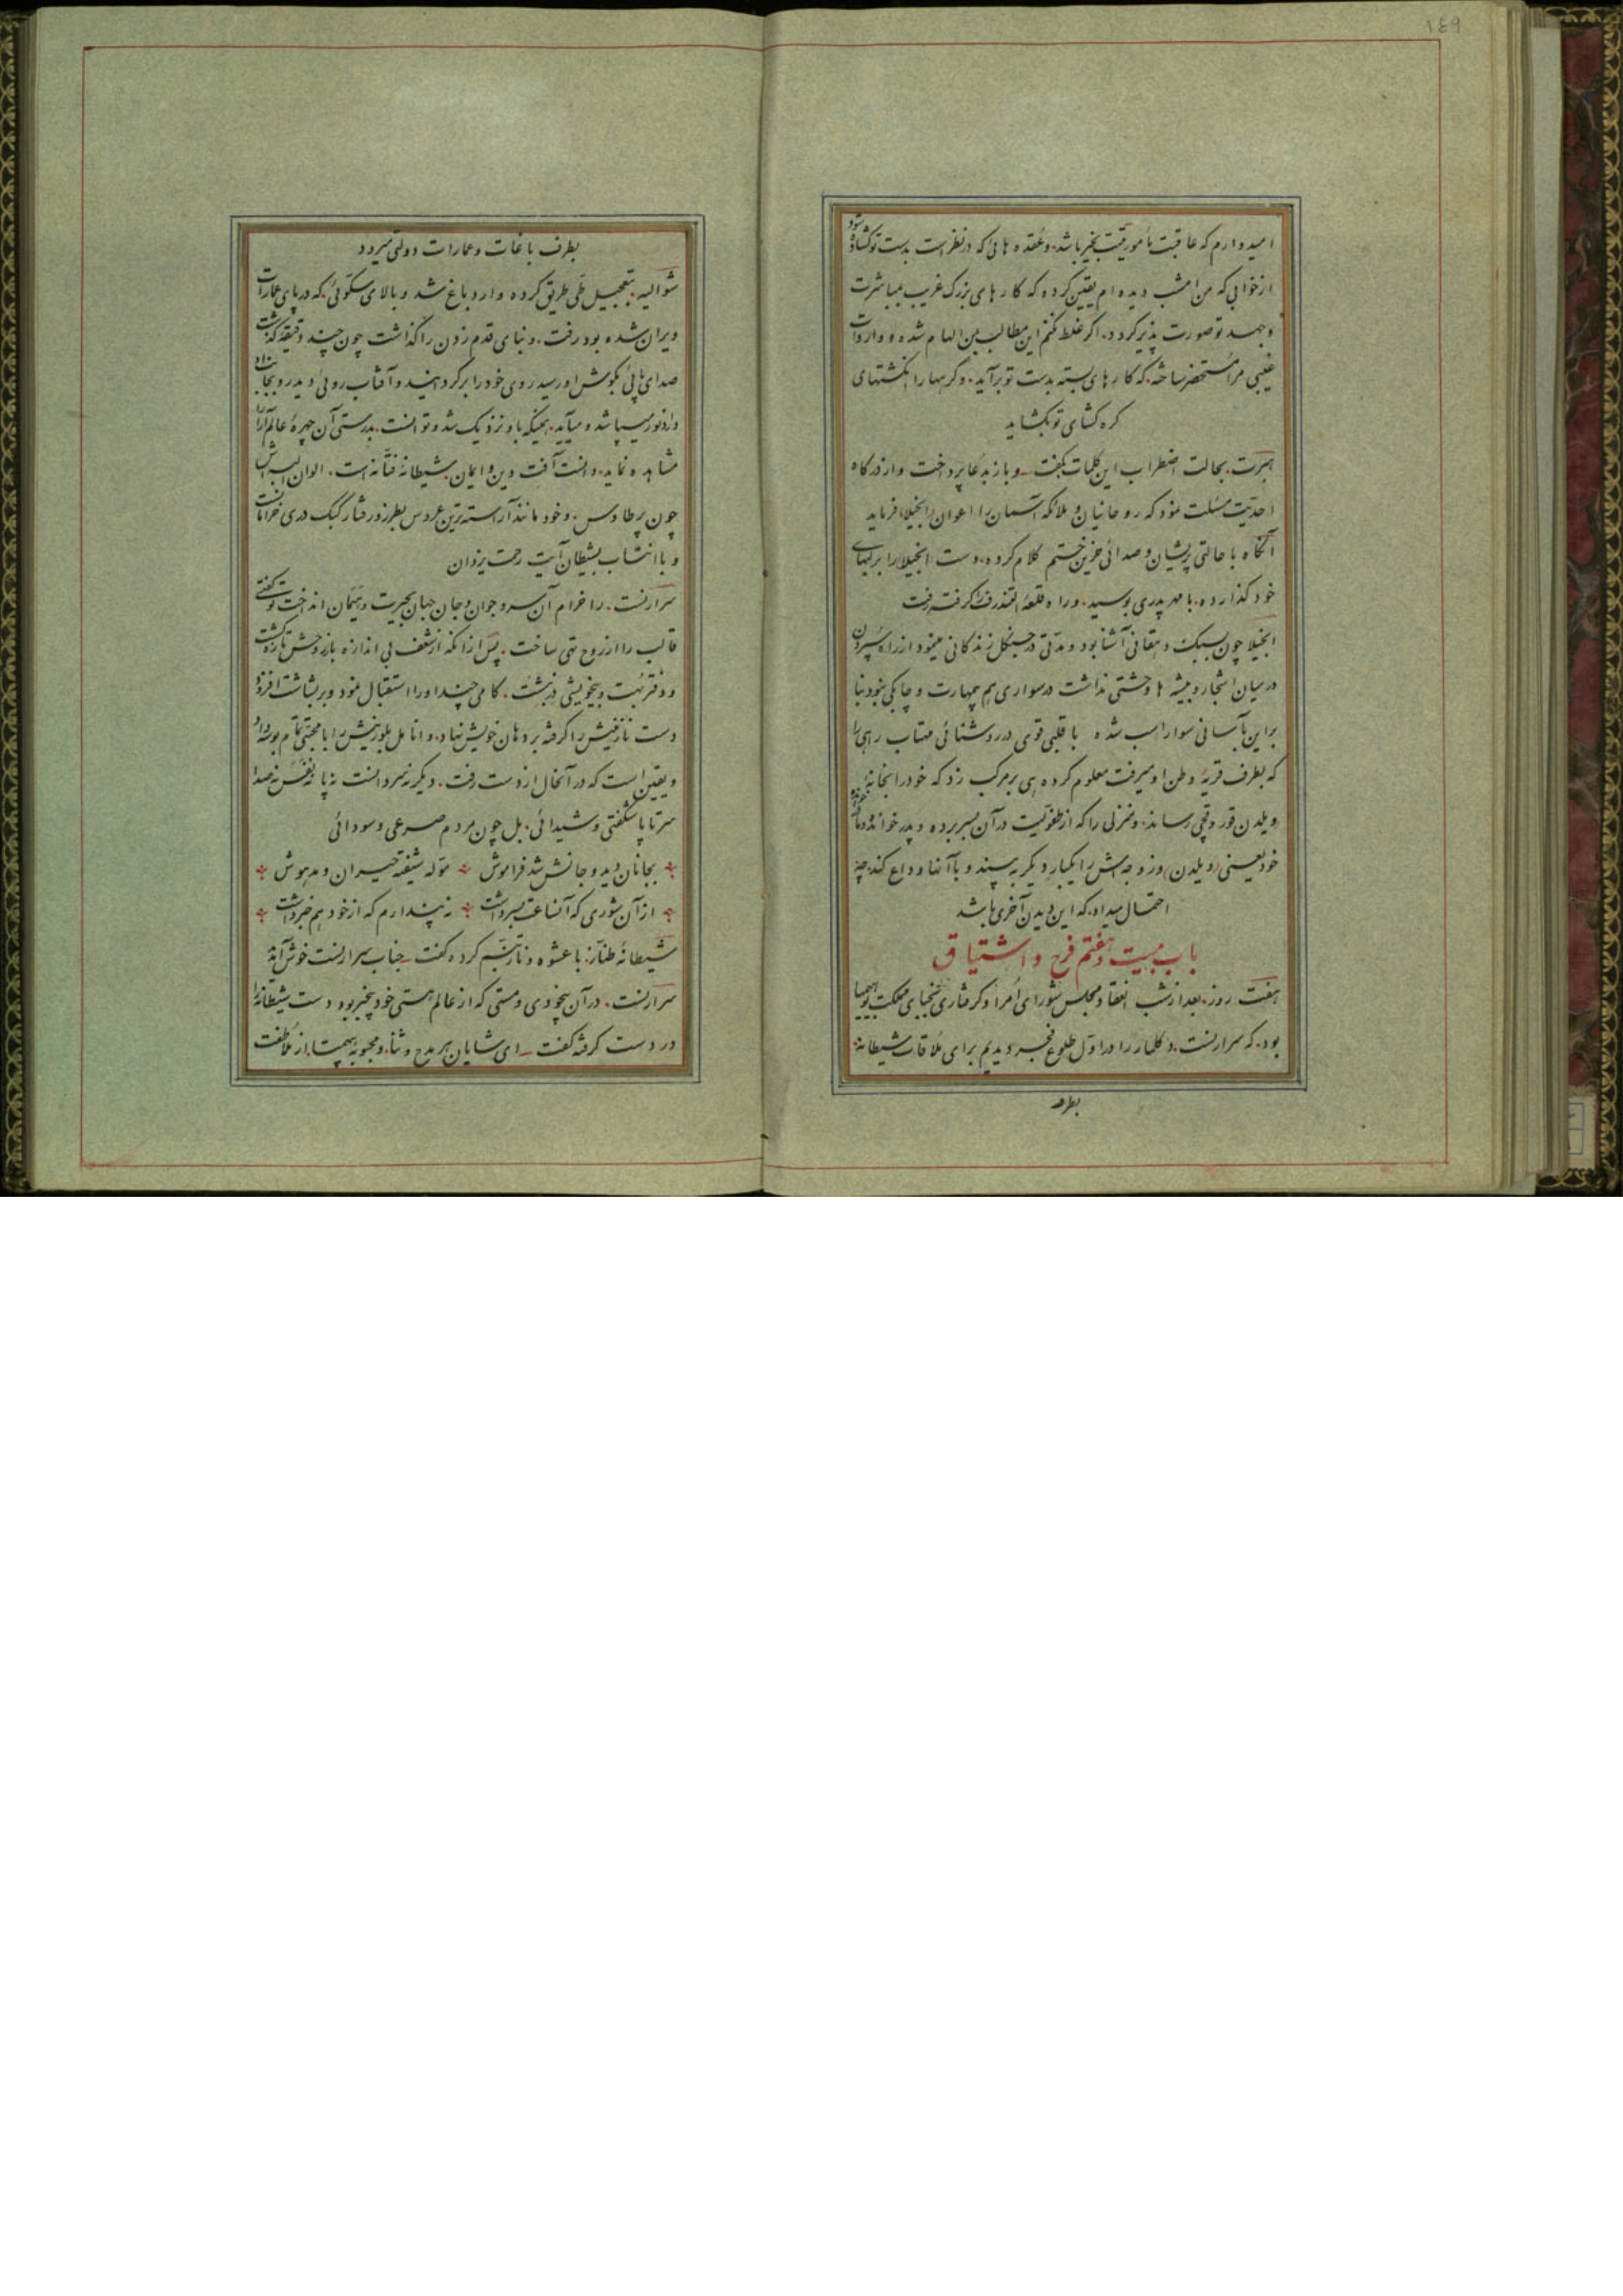 ١٤٩
امیدوارم که عاقبت مأموریّتت بخیر باشد. و عقده هائی که در نظر است بدست تو کشاده شود
از خوابی که من امشب دیده ام یقین کرده که کارهای بزرک غریب بمباشرت
و جهد تو صورت پذیر کردد. اکر غلط نکنم این مطالب بمن الهام شده و واردات
غیبی مرا مستحضر ساخته. که کارهای بسته بدست تو برآید. و کرهها را انکشتهای
کره کشای تو بکشاید
هبرت. بحالت اضطراب این کلمات بکفت ــ و باز بدعا پرداخت و از درکاه
احدیّت مسئلت نمود که روحانیان و ملائکه آسمان را اعوان انجیلا فرماید
آنکاه با حالتی پریشان و صدائی حزین ختم کلام کرده. دست انجیلا را بر لبهای
خود کذارده. با مهر پدری بوسید. و راه قلعه التندرف را کرفت و رفت
انجیلا چون بسبک دهقانی آشنا بود و مدّتی در جنکل زندکانی مینمود از راه سپردن
در میان اشجار و بیشه ها وحشتی نداشت در سواری هم بیمهارت و چابکی نبود بنا
براین بآسانی سوار اسب شده با قلبی قوی در روشنائی مهتاب راهی را
که بطرف قریه وطن او میرفت معلوم کرده پی بر مرکب زد که خود را بخانهٔ
ویلدن قوروقچی رساند. و منزلی را که از طفولیّت در آن بسر برده و پدر خوانده و مادر خوانده
خود یعنی ویلدن و زوجه اش را یکبار دیکر به بیند و با آنها وداع کند. چه
احتمال میداد. که این دیدن آخری باشد
باب بیست و هفتم فرح و اشتیاق
هفت روز. بعد از شب انعقاد مجلس شورای اُمرا و کرفتاری نجبای مملکت بوهیمیا
بود. که سرارنست. دکلمار را در اوّل طلوع فجر دیدیم برای ملاقات شیطانه
بطرف
بطرف باغات و عمارات دولتی میرود
شوالیه. بتعجیل طیّ طریق کرده وارد باغ شد و بالای سکّوئی. که در پای عمارات
ویران شده بود رفت. و بنای قدم زدن را کذاشت چون چند دقیقه کذشت
صدای پائی بکوش او رسید روی خود را برکردانید و آفتاب روئی دید رو بجانب او
دارد نور میپاشد و میآید. همینکه باو نزدیک شد و توانست. بدرستی آن چهرهٔ عالم آرا را
مشاهده نماید. دانست آفت دین و ایمان. شیطانهٔ فتّانه است. الوان البسه اش
چون پر طاوس. و خود مانند آراسته ترین عروس بطرز و رفتار کبک دری خرامانست
و با انتساب بشیطان آیت رحمت یزدان
سرارنست. را خرام آن سرو جوان و جان جهان بحیرت و هیمان انداخت تو کفتی
قالب را از روح تهی ساخت. پس از آنکه از شعف بی اندازه باز روحش تازه کشت
و دفتر بهت و بیخویشی در نبشت. کامی چند او را استقبال نمود و بر بشاشت افزود
دست نازنینش را کرفته بر دهان خویش نهاد. و انامل بلورینش را با محبّتی تمام بوسه داد
و یقین است که در آنحال از دست رفت. دیکر نه سر دانست نه پا نه نفس نه صدا
سرتاپا شکفتی و شیدائی. بل چون مردم صرعی و سودائی
بجانان دید و جانش شد فراموش موّله شیفته حیران و مدهوش
از آن شوری که آنساعت بسر داشت نه پندارم که از خود هم خبر داشت
شیطانهٔ طنّاز. با عشوه و ناز تبسّم کرده کفت ــ جناب سرارنست خوش آمدید
سرارنست. در آن بیخودی و مستی که از عالم هستی خود بیخبر بود دست شیطانه را
در دست کرفته کفت ــ ای شایان هر مدح و ثنا. و محبوبه بیهمتا. از ملاطفت